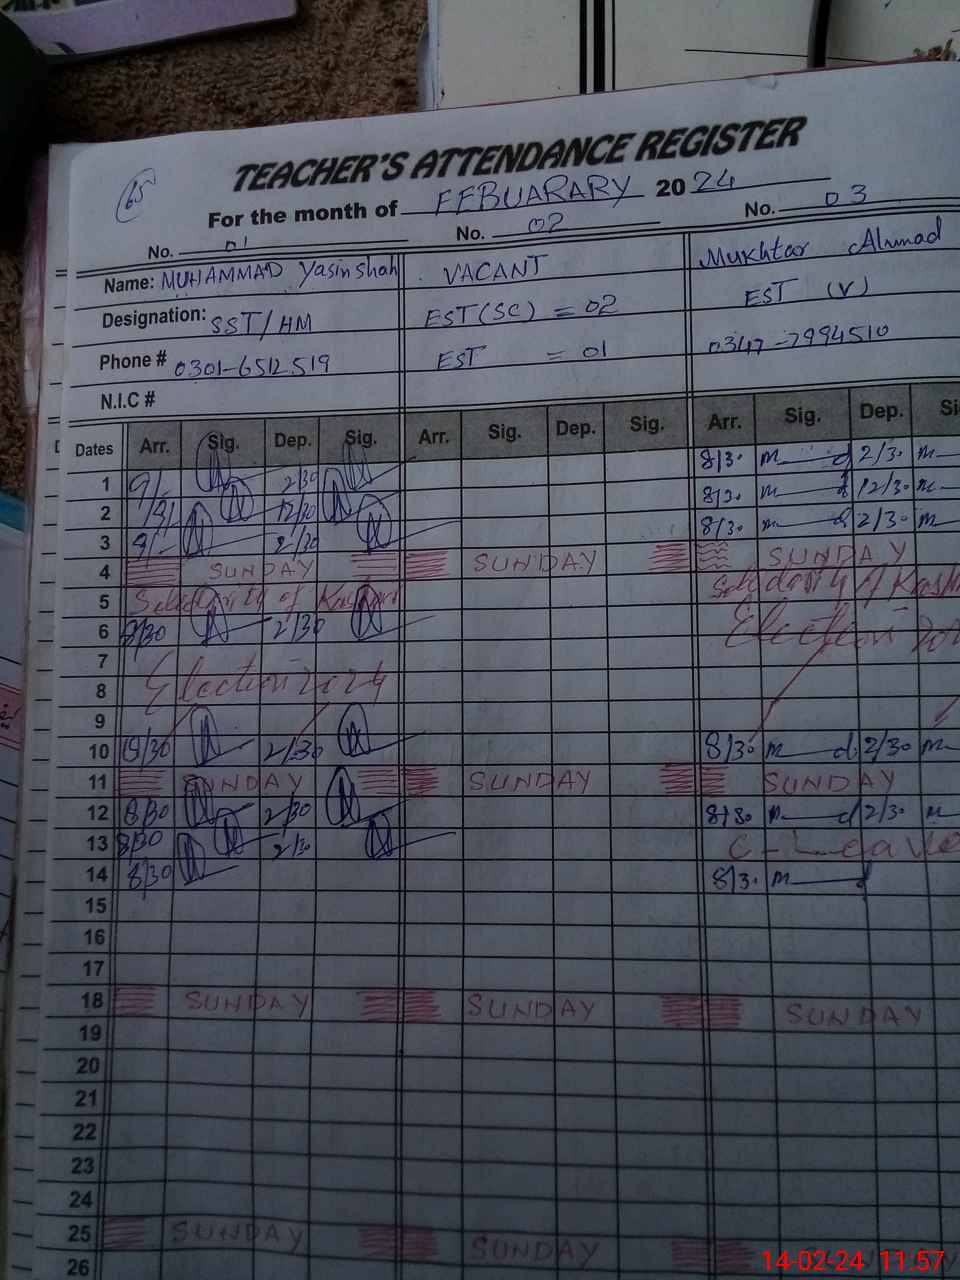 65
TEACHER'S ATTENDANCE REGISTER
For the month of FEBUARARY 2024
No. 01 No. 02 No. 03
Name: MUHAMMAD Yasin shah VACANT Mukhtar Ahmad
Designation: SST/HM EST(SC) = 02 EST (V)
Phone # 0301-6512519 EST = 01 0347-7994510
N.I.C #
Dates Arr. Sig. Dep. Sig. Arr. Sig. Dep. Sig. Arr. Sig. Dep.
1 9/- 2/30 8/30 m d 2/30 m
2 12/30 8/30 m d 12/30 m
3 9/- 2/30 8/30 m d 2/30 m
4 SUNDAY SUNDAY SUNDAY
5 Solidarity of
6 8/30 2/30 Election
7
8 Election 2024
9
10 8/30 2/30 8/30 m d 2/30 m
11 SUNDAY SUNDAY SUNDAY
12 8/30 2/30 8/30 m d 2/30 m
13 8/30 2/30 C-Leave
14 8/30 8/30 m d
15
16
17
18 SUNDAY SUNDAY SUNDAY
19
20
21
22
23
24
25 SUNDAY SUNDAY
26
14-02-24 11:57